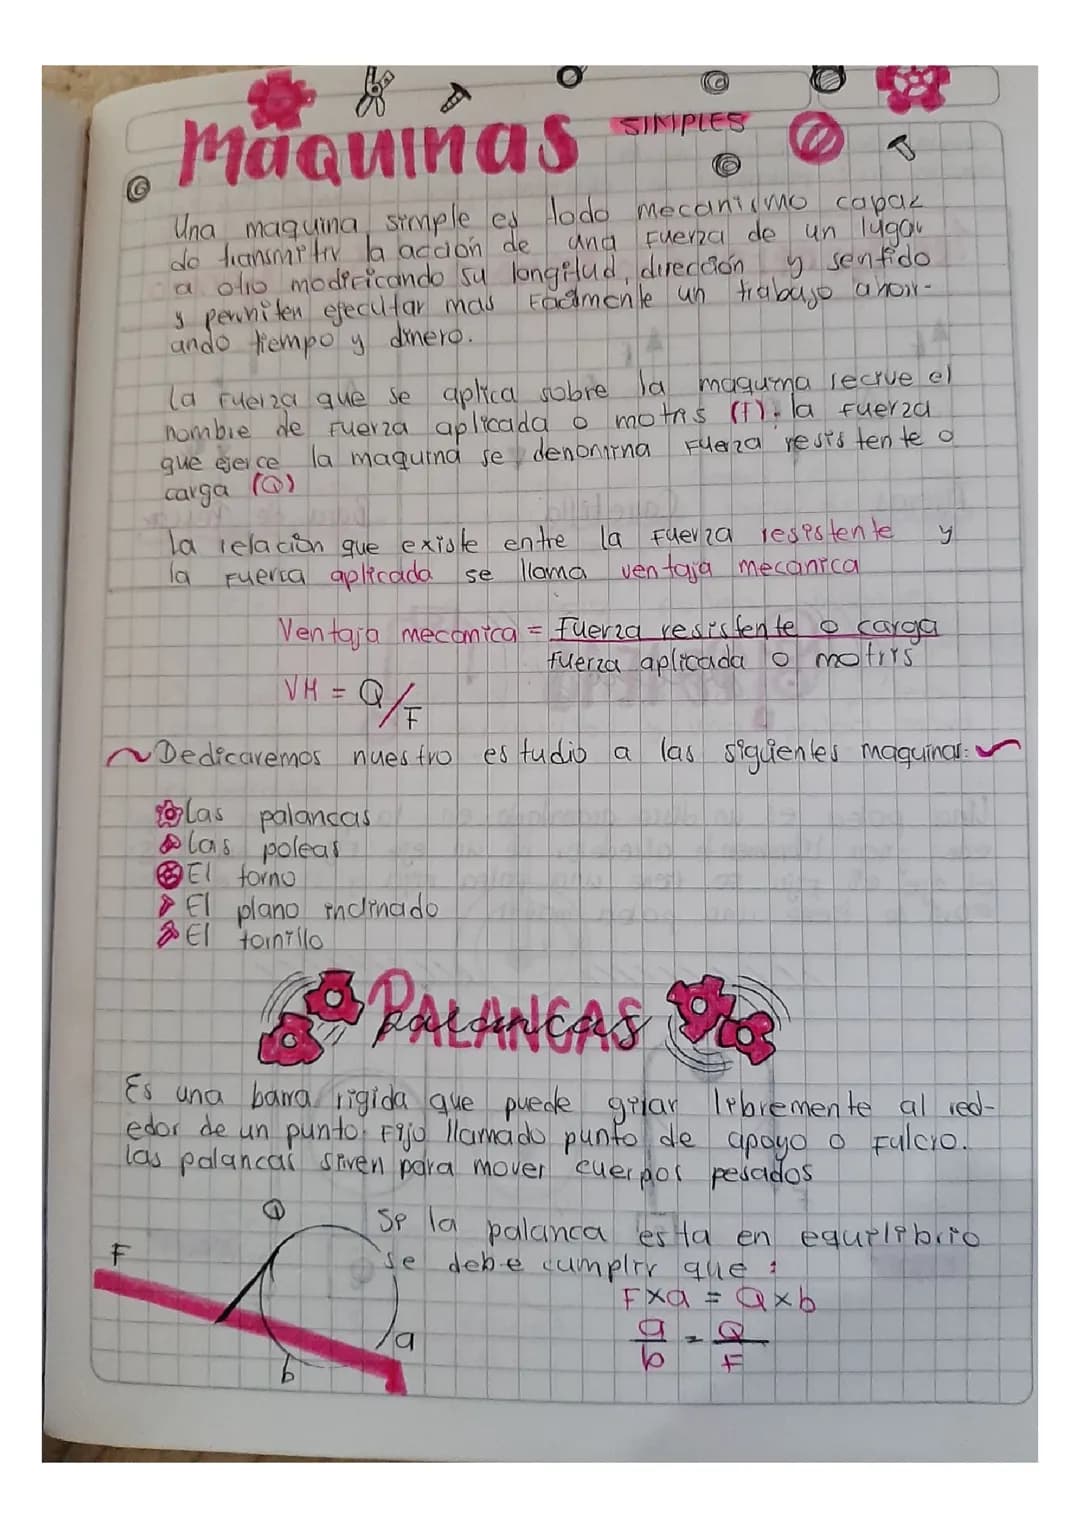 maquinas SIMPLES
Una maquina simple es todo mecanismo capaz
de transmitir la acción de una fuerza de un lugar
a otro modificando su longitud, dirección y sentido
y permiten ejecutar mas facilmente un trabajo ahorr-
ando tiempo y dinero.
la fuerza que se aplica sobre la maquina recive el
nombre de fuerza aplicada o motris (F). la fuerza
que ejerce la maquina se denomina fuerza resistente o
carga (Q)
la relación que existe entre la fuerza resistente y
la fuerza aplicada se llama ventaja mecanica
Ventaja mecanica = fuerza resistente o carga
fuerza aplicada o motris
VM = Q/F
Dedicaremos nuestro estudio a las siguientes maquinas:
las palancas
las poleas
El torno
El plano inclinado
El tornillo
PALANCAS
Es una barra rigida que puede girar libremente al red-
edor de un punto fijo llamado punto de apoyo o fulcro.
las palancas sirven para mover cuerpos pesados
Q
F
a
b
Si la palanca esta en equilibrio
se debe cumplir que:
F×a = Q×b
a/b = Q/F